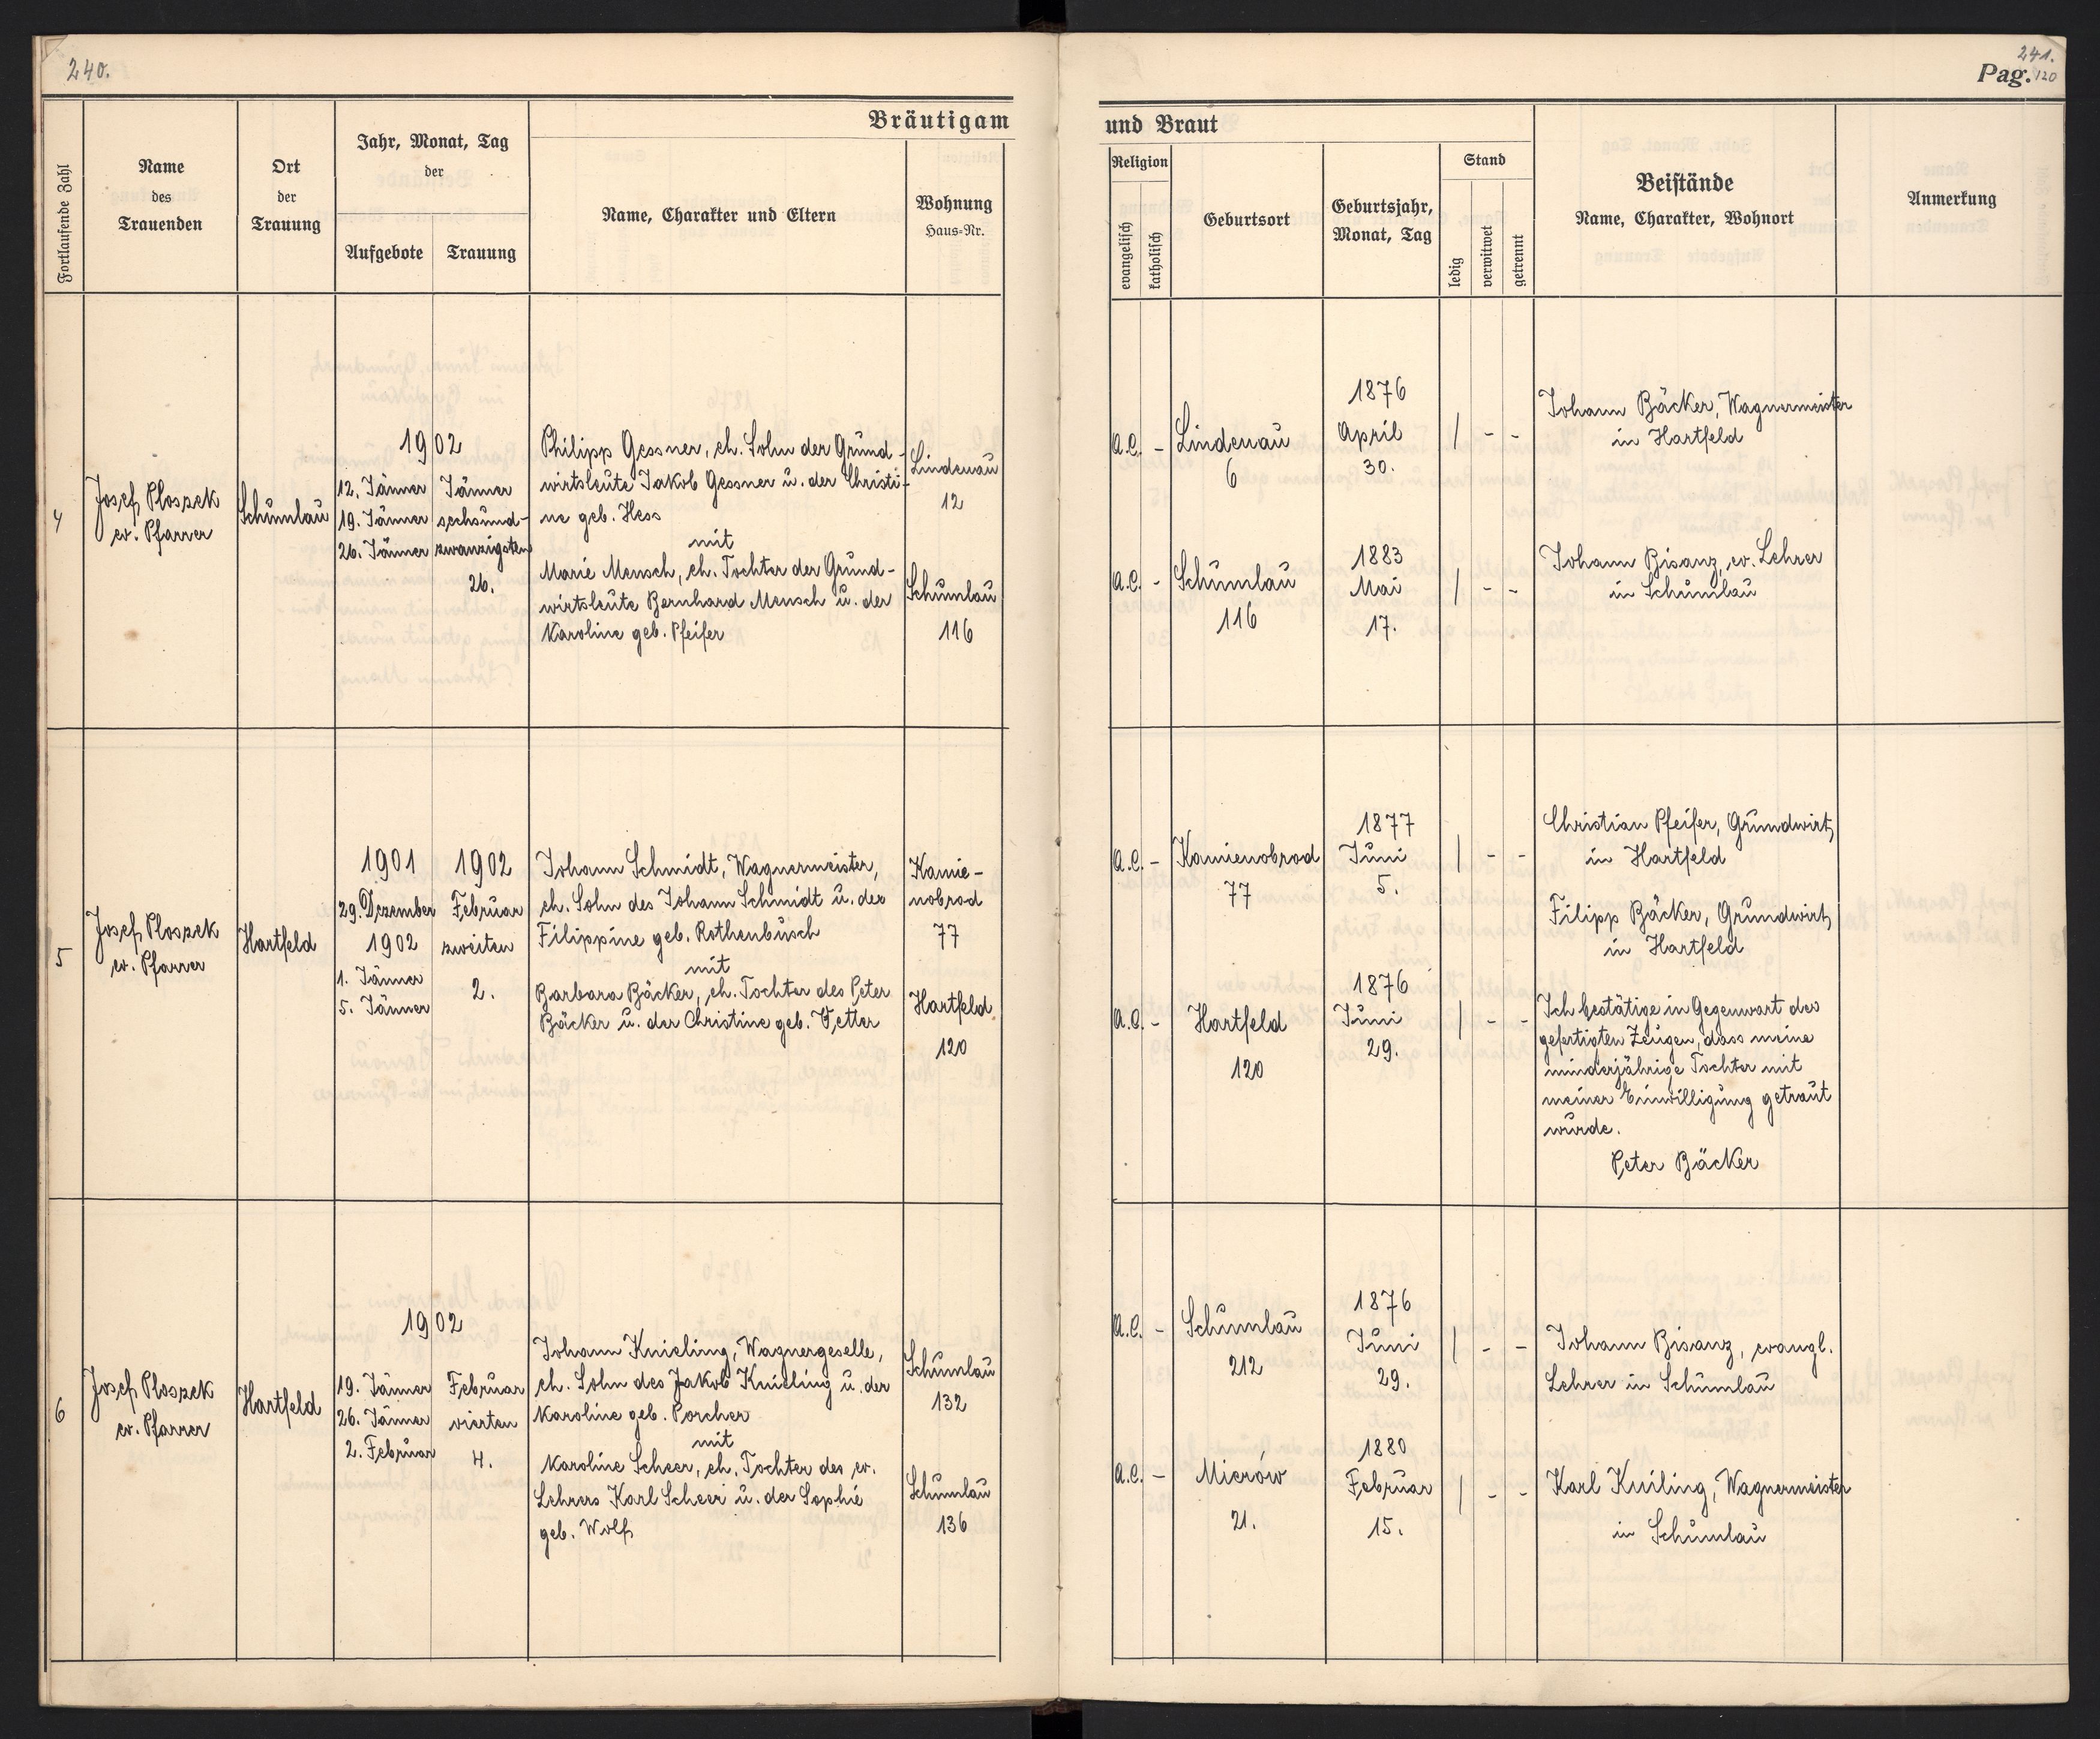 240.
241.
Pag. 120
Bräutigam
und Braut
Fortlaufende Zahl
Name
des
Trauenden
Ort
der
Trauung
Jahr, Monat, Tag
der
Aufgebote
Trauung
Name, Charakter und Eltern
Wohnung
Haus-Nr.
Religion
evangelisch
katholisch
Geburtsort
Geburtsjahr,
Monat, Tag
Stand
ledig
verwitwet
getrennt
Beistände
Name, Charakter, Wohnort
Anmerkung
4
Josef Ploszek
ev. Pfarrer
Schumlau
1902
12. Jänner
19. Jänner
26. Jänner
Jänner
sechsund-
zwanzigsten
26.
Philipp Gessner, eh. Sohn der Grund-
wirtsleute Jakob Gessner u. der Christi-
ne geb. Hess
mit
Marie Mensch, eh. Tochter der Grund-
wirtsleute Bernhard Mensch u. der
Karoline geb. Pfeifer
Lindenau
12
Schumlau
116
A.C. -
Lindenau
6
1876
April
30.
/ - -
Johann Bäcker, Wagnermeister
in Hartfeld
A.C. -
Schumlau
116
1883
Mai
17.
/ - -
Johann Bisanz, ev. Lehrer
in Schumlau
5
Josef Ploszek
ev. Pfarrer
Hartfeld
1901
29. Dezember
1902
1. Jänner
5. Jänner
1902
Februar
zweiten
2.
Johann Schmidt, Wagnermeister,
eh. Sohn des Johann Schmidt u. der
Filippine geb. Rothenbusch
mit
Barbara Bäcker, eh. Tochter des Peter
Bäcker u. der Christine geb. Vetter
Kamie-
nobrod
77
Hartfeld
120
A.C. -
Kamienobrod
77
1877
Juni
5.
/ - -
Christian Pfeifer, Grundwirt,
in Hartfeld
Filipp Bäcker, Grundwirt,
in Hartfeld
A.C. -
Hartfeld
120
1876
Juni
29.
/ - -
Ich bestätige in Gegenwart der
gefertigten Zeugen, dass meine
minderjährige Tochter mit
meiner Einwilligung getraut
wurde.
Peter Bäcker
6
Josef Ploszek
ev. Pfarrer
Hartfeld
1902
19. Jänner
26. Jänner
2. Februar
Februar
vierten
4.
Johann Knieling, Wagnergeselle,
eh. Sohn des Jakob Knieling u. der
Karoline geb. Porcher
mit
Karoline Scheer, eh. Tochter des ev.
Lehrers Karl Scheer u. der Sophie
geb. Wolf
Schumlau
132
Schumlau
136
A.C. -
Schumlau
212
1876
Juni
29.
/ - -
Johann Bisanz, evangl.
Lehrer in Schumlau
A.C. -
Mierów
21.
1880
Februar
15.
/ - -
Karl Kniling, Wagnermeister
in Schumlau